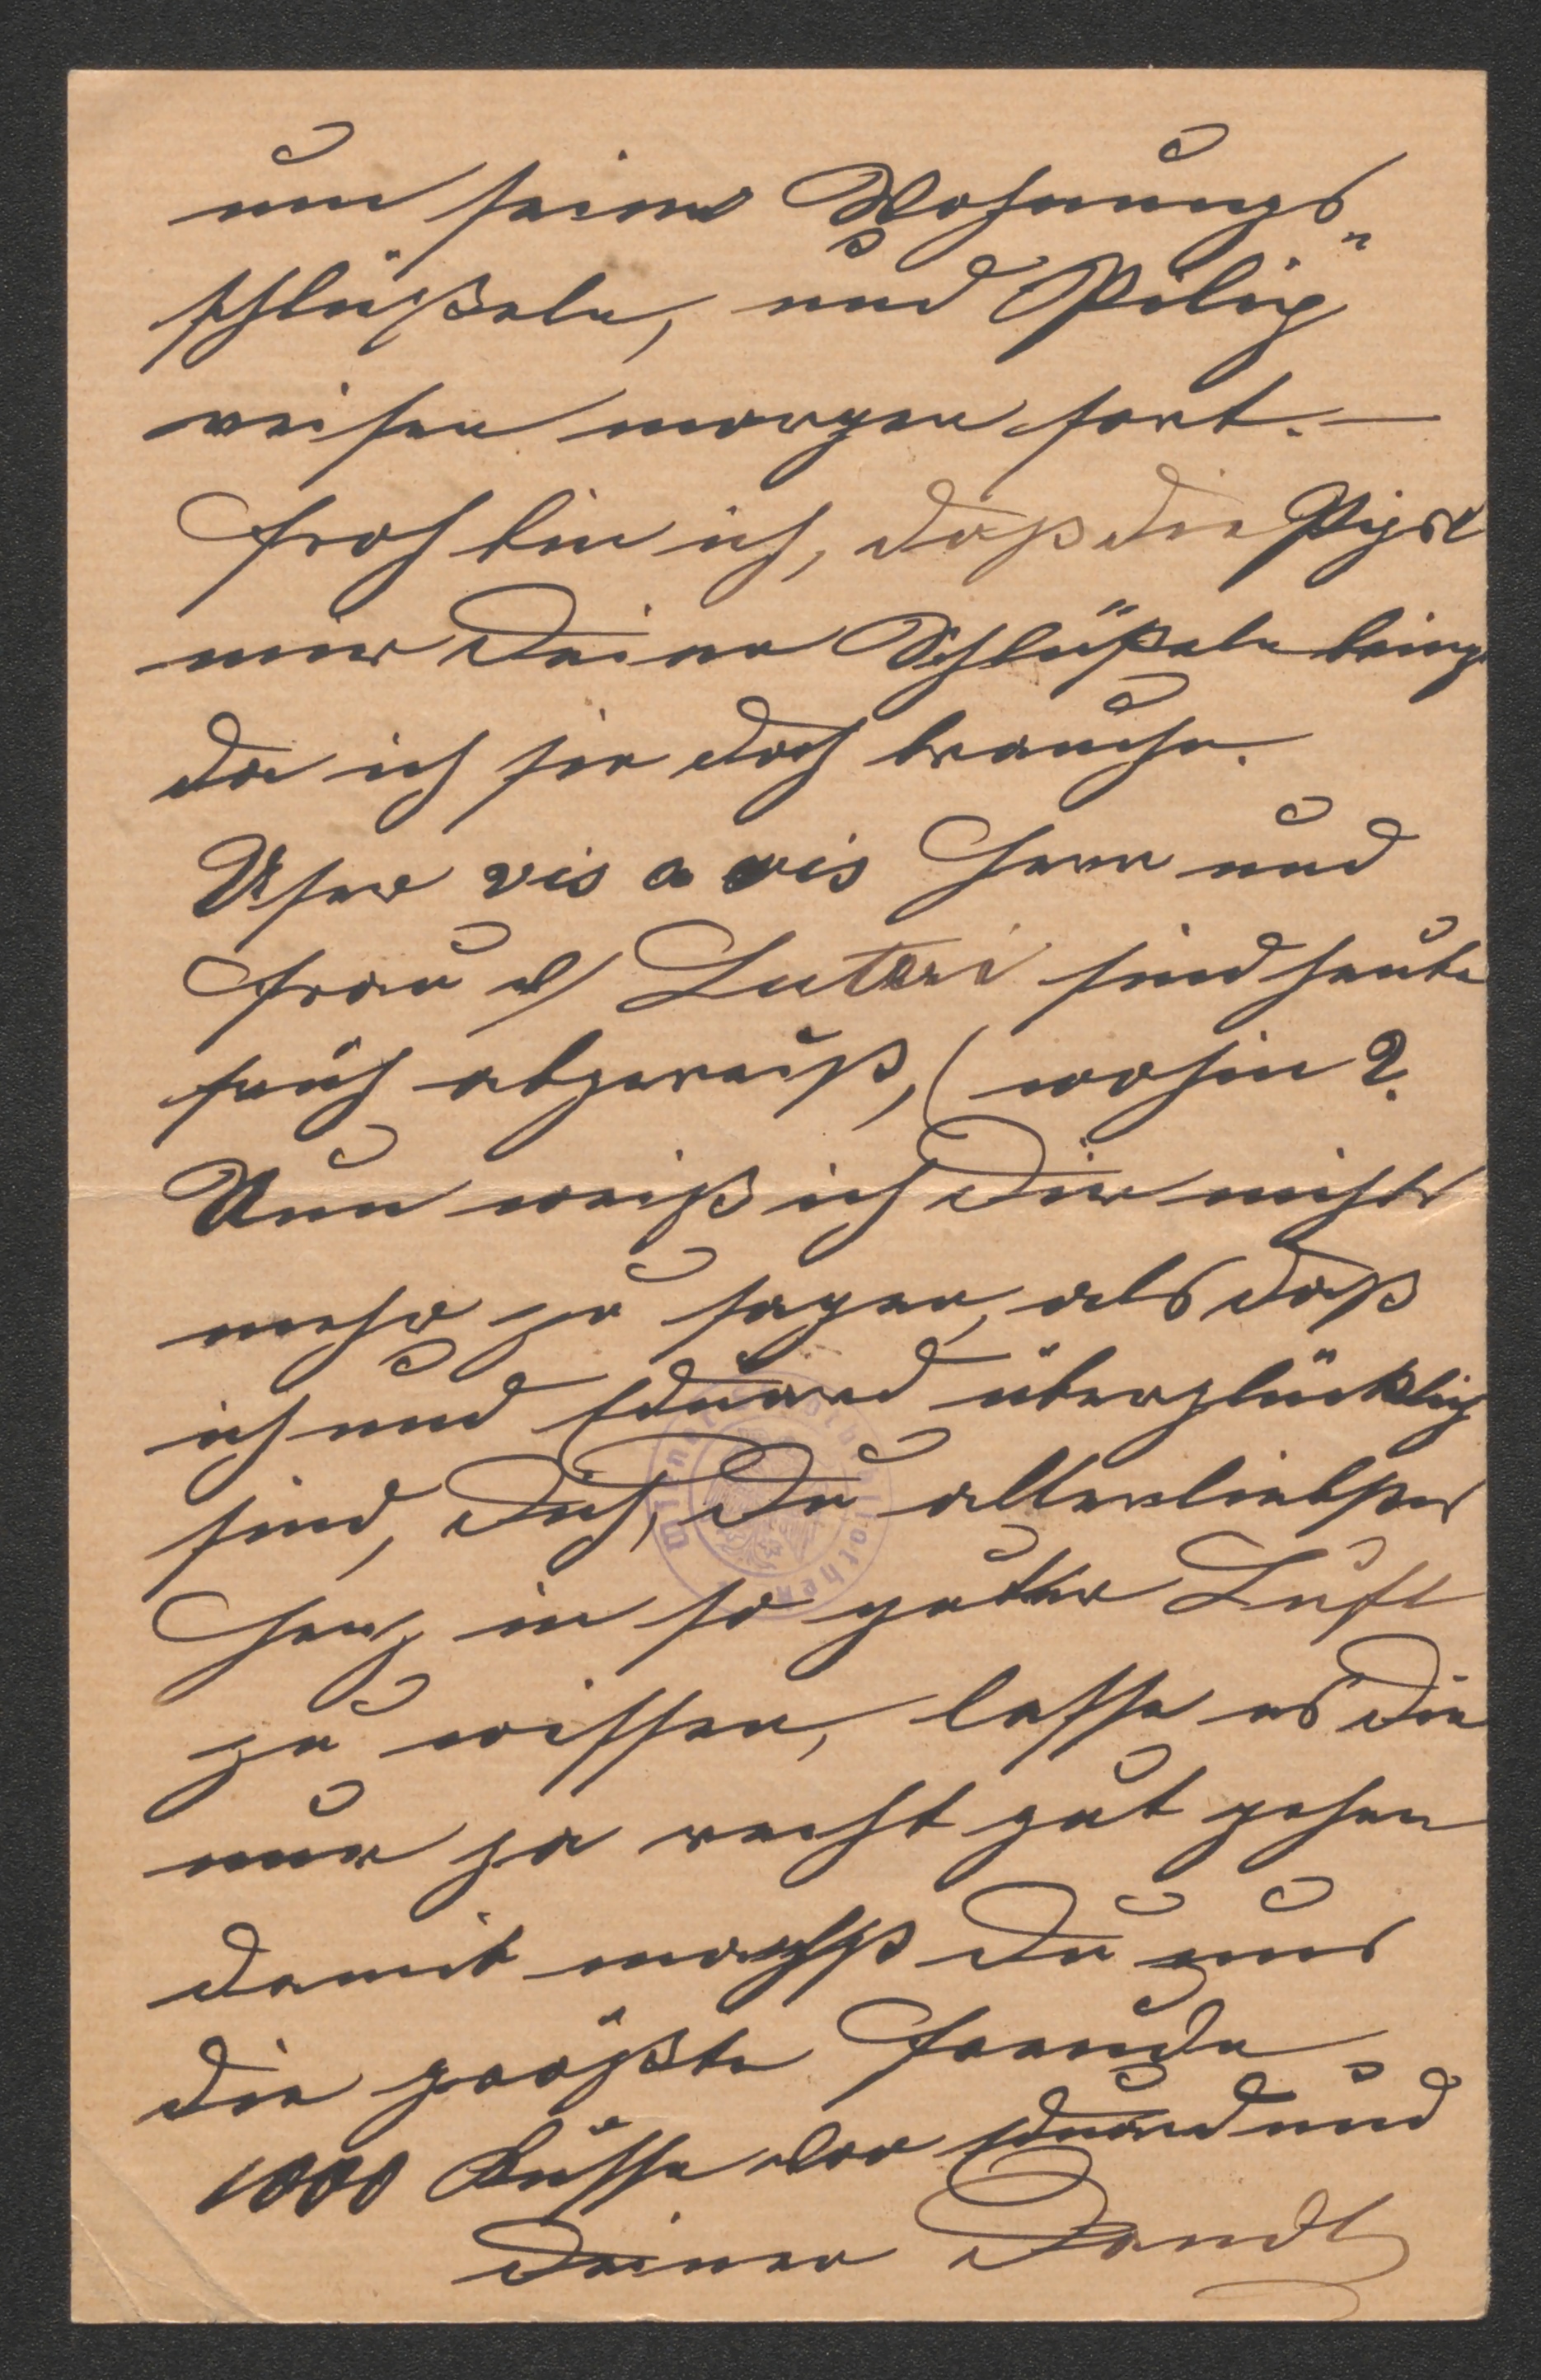 um seine Wohnungs„
schlüßeln, und Pölzig
reisen morgen fort. —
Froh bin ich, daß die
mir Deine Schlüßeln bringt
da ich sie doch brauche.
vis a vis Herr und
Frau v/ Luteri sind heute
früh abgereißt, ( wohin ?
Nun weiß ich Dir nichts
mehr zu sagen, als daß
ich und Eduard überglücklich
sind, Dich, Du allerliebstes
Herz in so guter Luft
zu wissen, lasse es Dir
nur ja recht gut gehen
damit machst Du uns
die größte Freude
1000 Küsse von Eduard und
Deiner